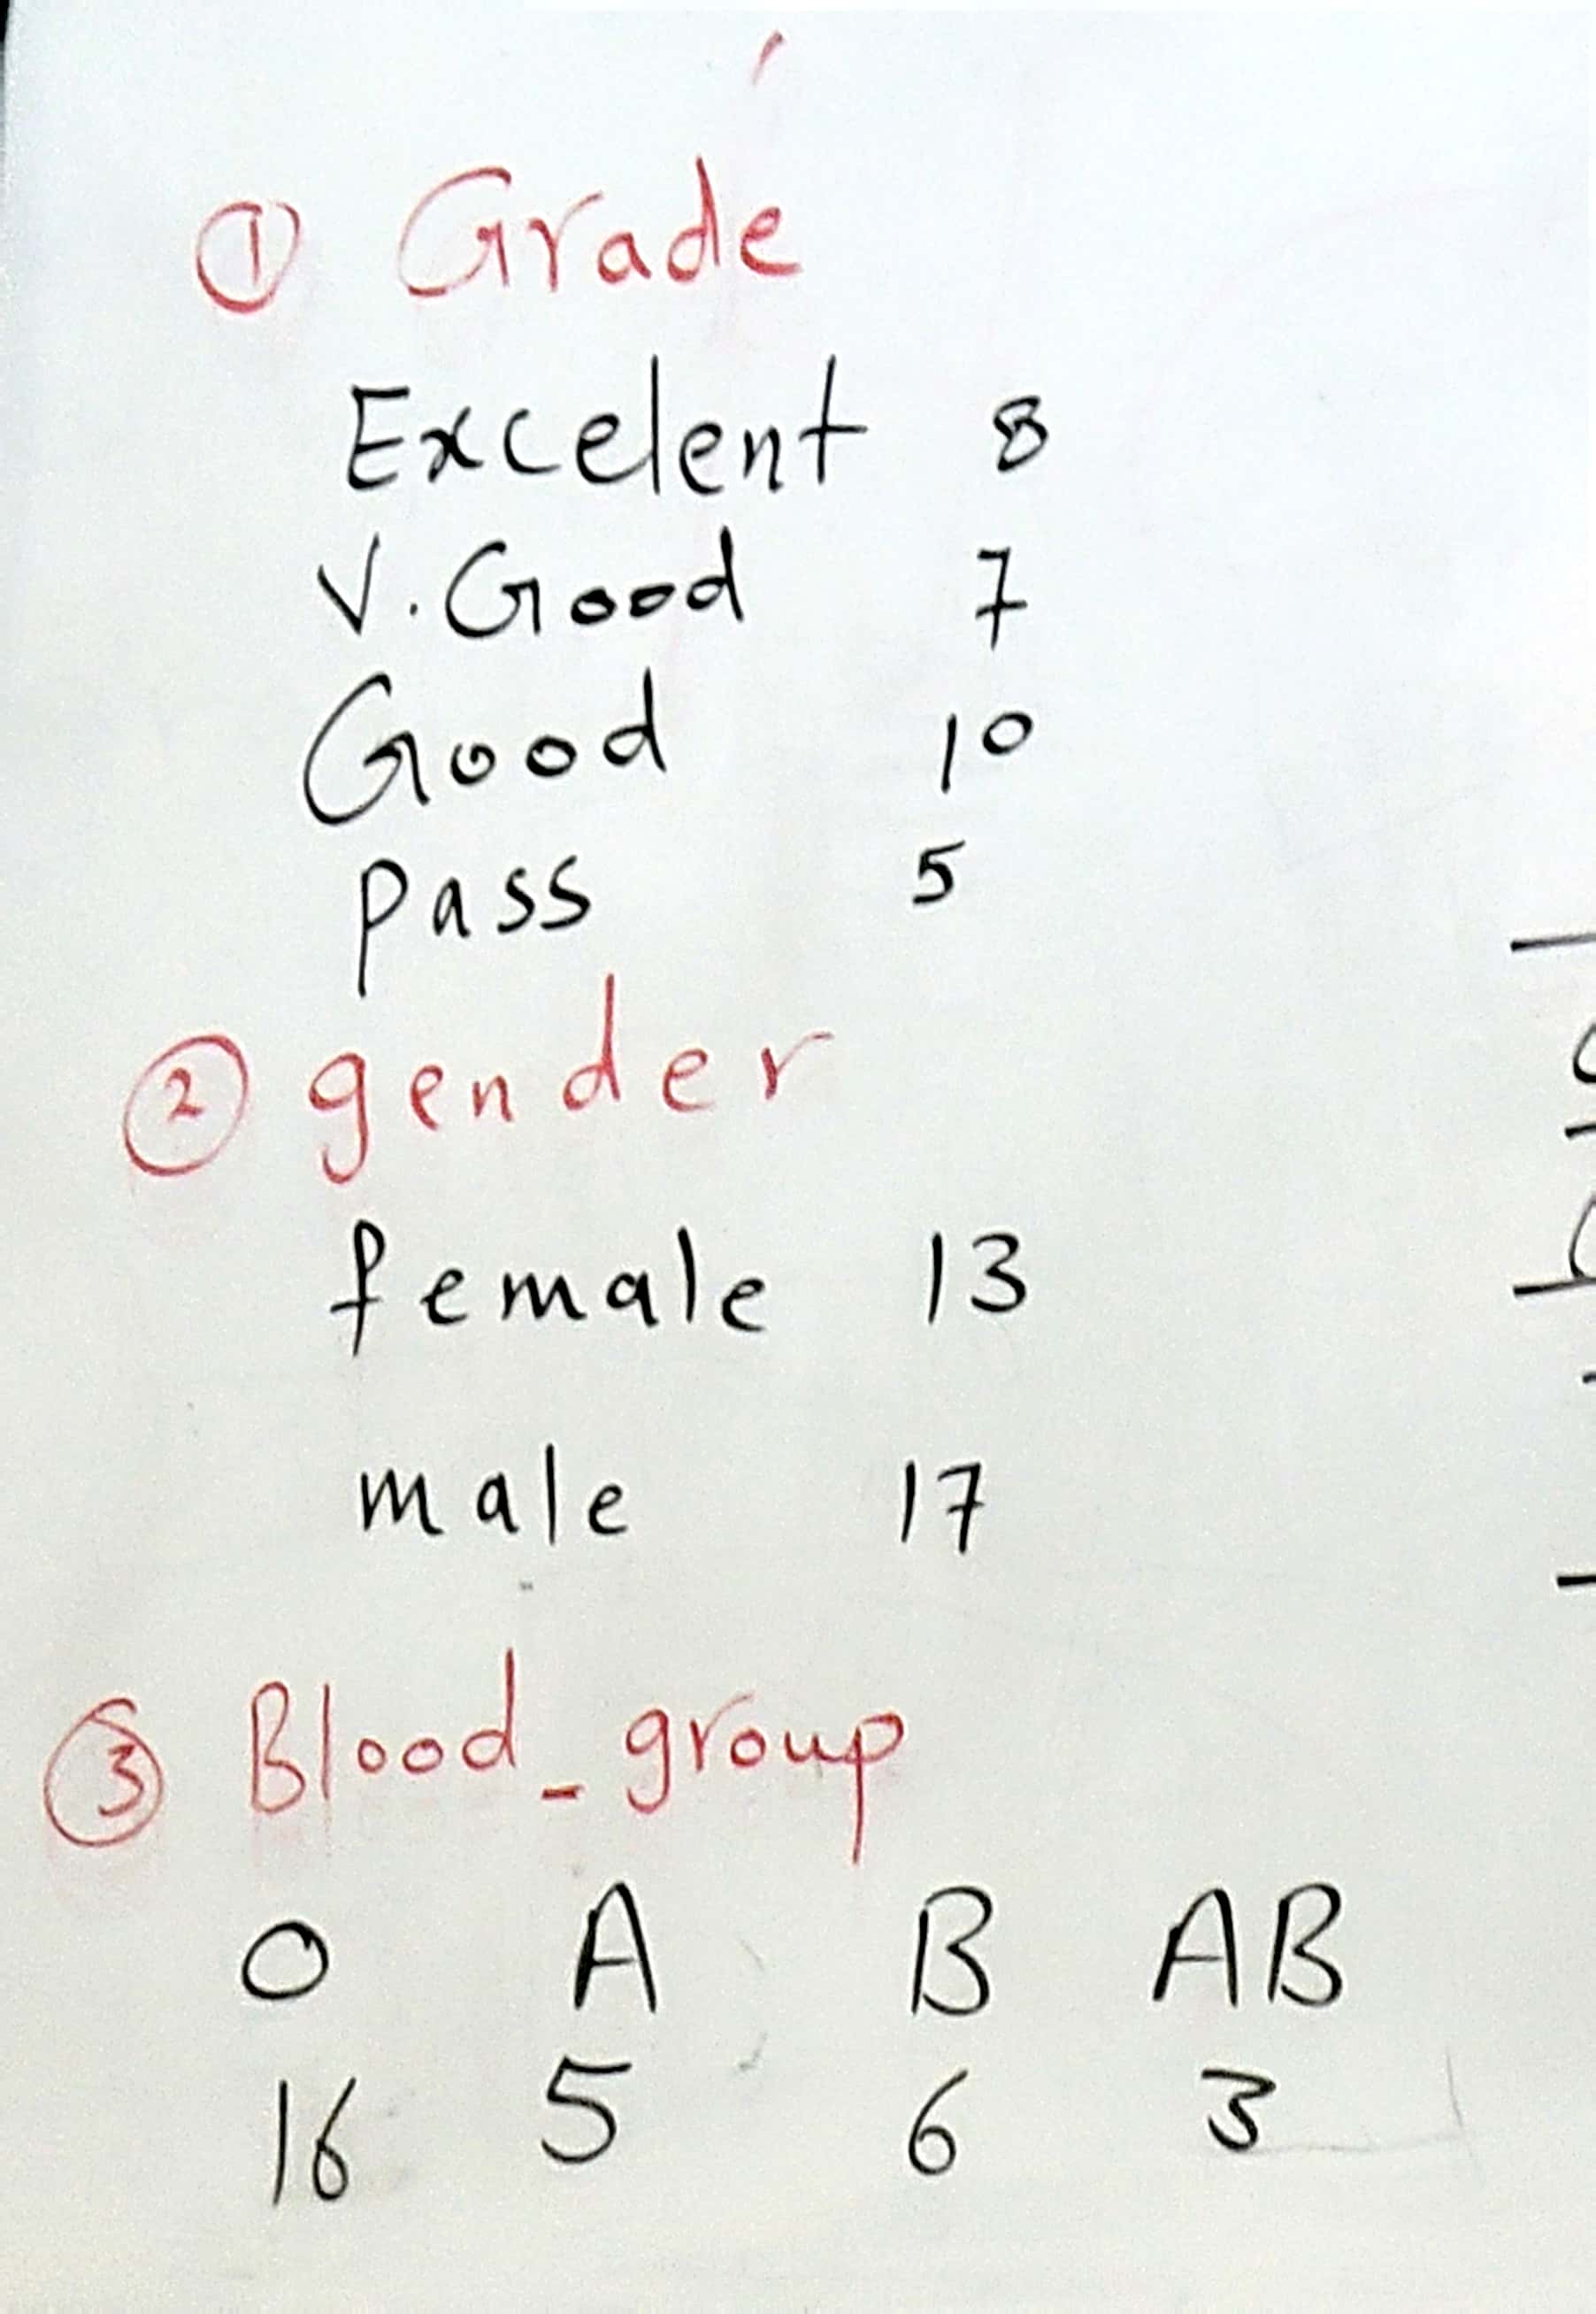 ① Grade
Excelent 8
V. Good 7
Good 10
pass 5
② gender
female 13
male 17
③ Blood_group
O A B AB
16 5 6 3